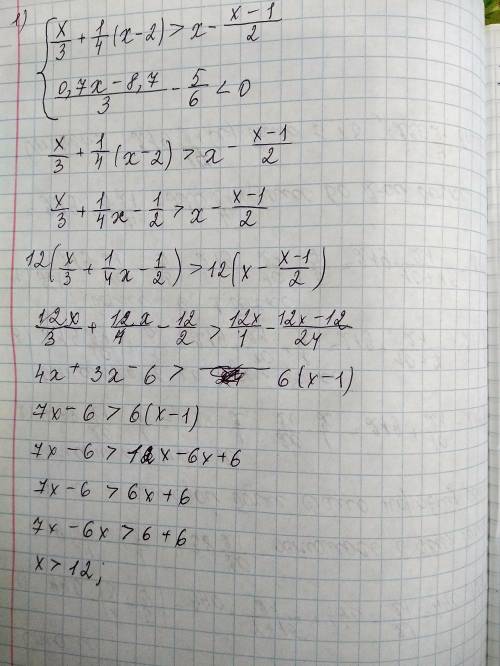 1) { x/3 + 1/4(x-2) > x - (x-1)/2
(0,7x-8,7)/3 - 5/6 < 0
x/3 + 1/4(x-2) > x - (x-1)/2
x/3 + 1/4x - 1/2 > x - (x-1)/2
12(x/3 + 1/4x - 1/2) > 12(x - (x-1)/2)
12x/3 + 12x/4 - 12/2 > 12x/1 - (12x-12)/24
4x + 3x - 6 > 6(x-1)
7x - 6 > 6(x-1)
7x - 6 > 12x - 6x + 6
7x - 6 > 6x + 6
7x - 6x > 6 + 6
x > 12;